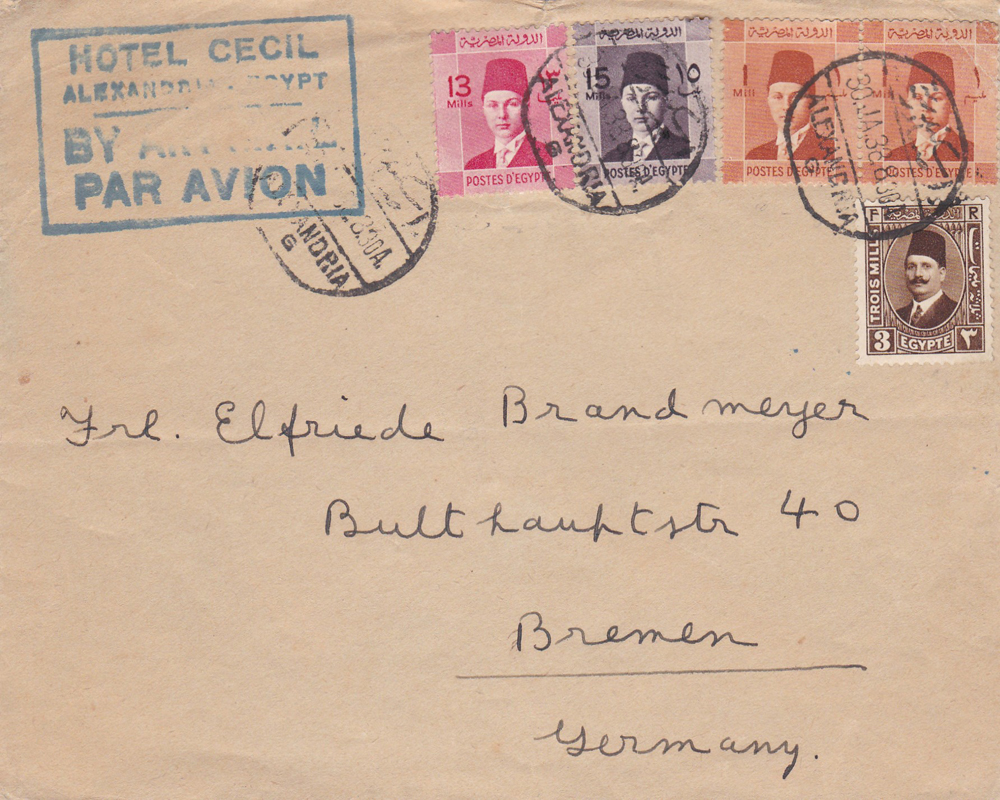 HOTEL CECIL
ALEXANDRIA. EGYPT
BY AIR MAIL
PAR AVION
الدولة المصرية
13
Mills
POSTES D'EGYPT
الدولة المصرية
15
Mills
١٥
POSTES D'EGYPT
الدولة المصرية
1
Mill
POSTES D'EGYPT
الدولة المصرية
1
POSTES D'EGYPT
ALEXANDRIA
G
30A.
ALEXANDRIA
G
30.JA.38.8.30A
ALEXANDRIA
F
R
TROIS MILL
3
EGYPTE
٣
Frl. Elfriede Brandmeyer
Bulthauptstr 40
Bremen
Germany.